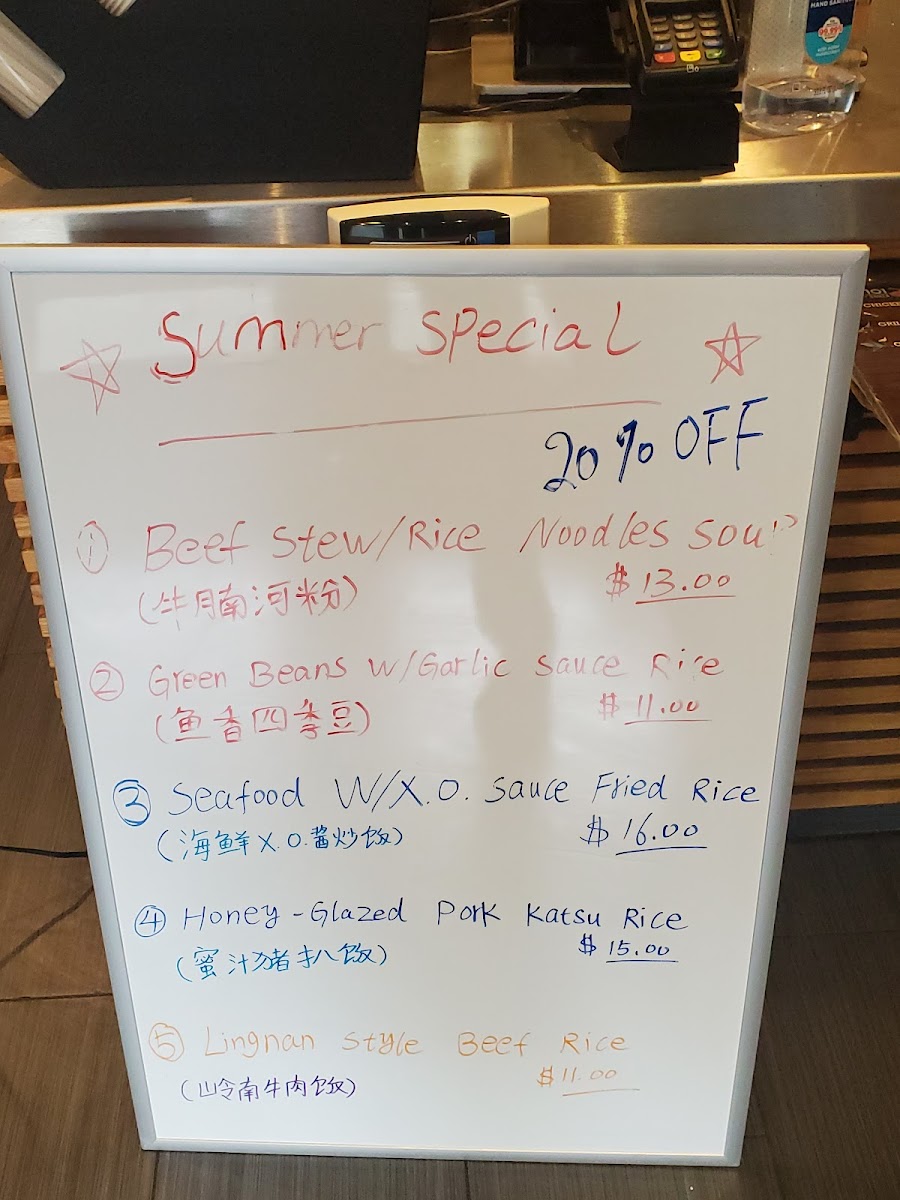 HAND SANITI
99.99%
CHICKE
GRIL
Summer Special
20% OFF
① Beef Stew/Rice Noodles Soup
$13.00
(牛腩河粉)
② Green Beans W/Garlic Sauce Rice
$11.00
(鱼香四季豆)
③ Seafood W/X.O. Sauce Fried Rice
$16.00
(海鲜X.O.酱炒饭)
④ Honey-Glazed Pork Katsu Rice
$15.00
(蜜汁猪扒饭)
⑤ Lingnan Style Beef Rice
$11.00
(岭南牛肉饭)